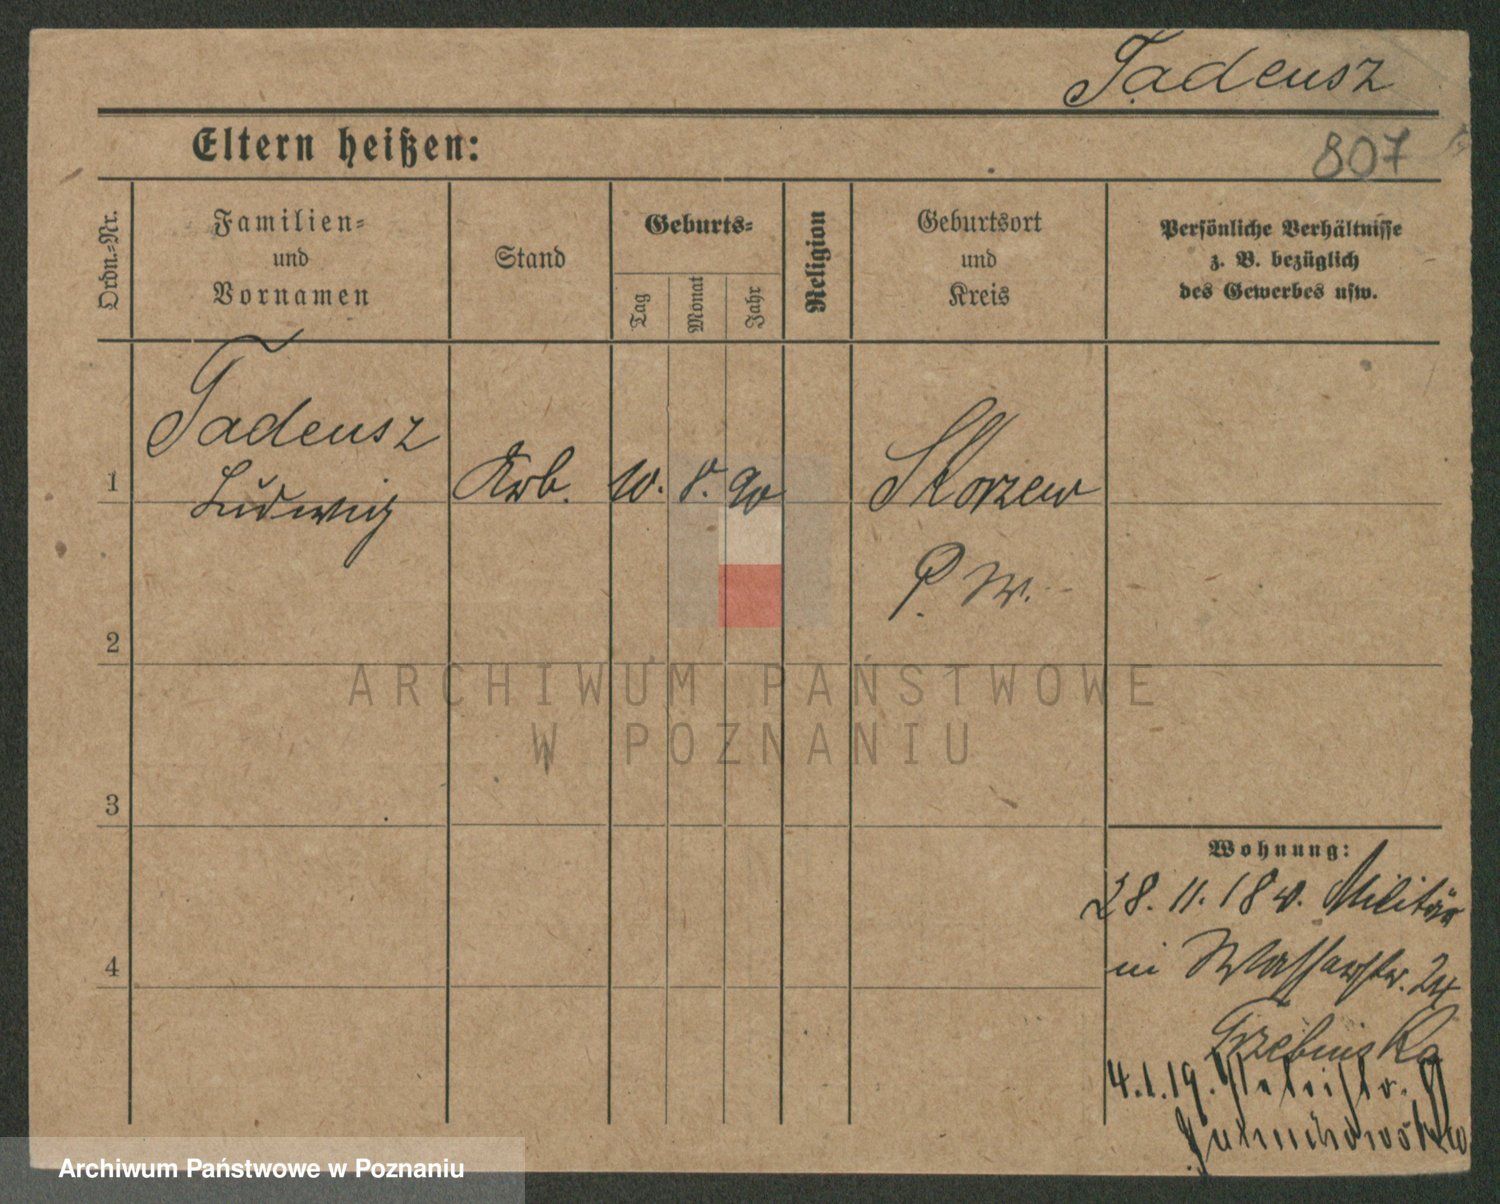 Tadeusz
807
Eltern heißen:
Ordn.-Nr.
Familien-
und
Vornamen
Stand
Geburts-
Tag
Monat
Jahr
Religion
Geburtsort
und
Kreis
Persönliche Verhältnisse
z. B. bezüglich
des Gewerbes usw.
1
Tadeusz
Ludwig
Arb.
10. 8. 90
Skorzew
P. W.
2
3
4
Wohnung:
28. 11. 18 v. Militär
in Wasserstr. 24
Trzebinska
4. 1. 19.
ARCHIWUM PAŃSTWOWE
W POZNANIU
Archiwum Państwowe w Poznaniu